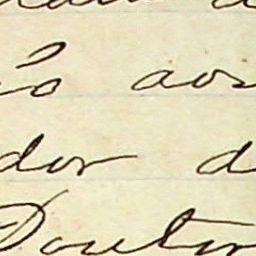 ão aos
dor d
Doutor